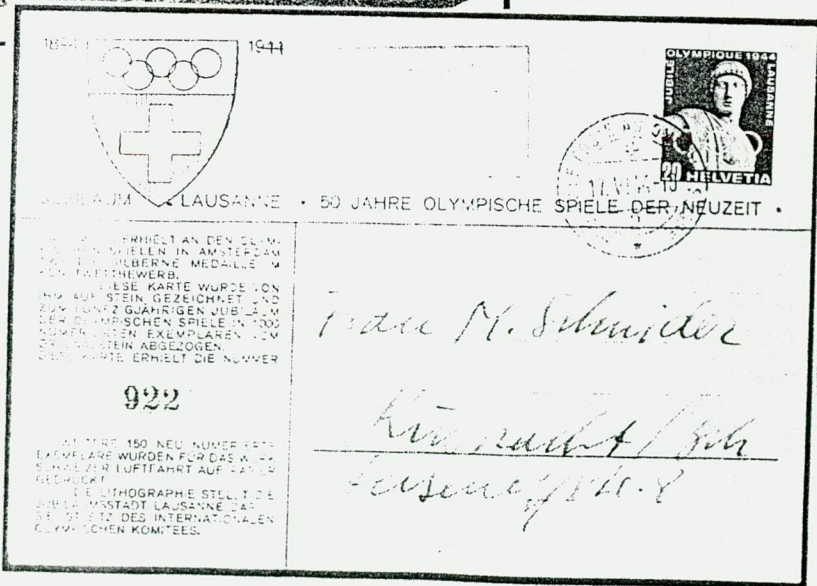 1944
JUBILÉ OLYMPIQUE 1944 LAUSANNE
20 HELVETIA
LAUSANNE • 50 JAHRE OLYMPISCHE SPIELE DER NEUZEIT •
ERHIELT AN DEN
SPIELEN IN AMSTERDAM
SILBERNE MEDAILLE IM
DIESE KARTE WURDE VON
IHM AUF STEIN GEZEICHNET UND
ZUM FUNFZIGJÄHRIGEN JUBILÄUM
DER OLYMPISCHEN SPIELE IN 1000
EXEMPLAREN VOM
ABGEZOGEN.
DIESE KARTE ERHIELT DIE NUMMER
922
WEITERE 150 NEU
EXEMPLARE WURDEN FÜR DAS WERK
SCHWEIZER LUFTFAHRT AUF
GEDRUCKT.
DIE LITHOGRAPHIE STELLT DIE
JUBILÄUMSSTADT LAUSANNE DAR
SITZ DES INTERNATIONALEN
OLYMPISCHEN KOMITEES.
Frau M. Schneider
Küsnacht / Zch